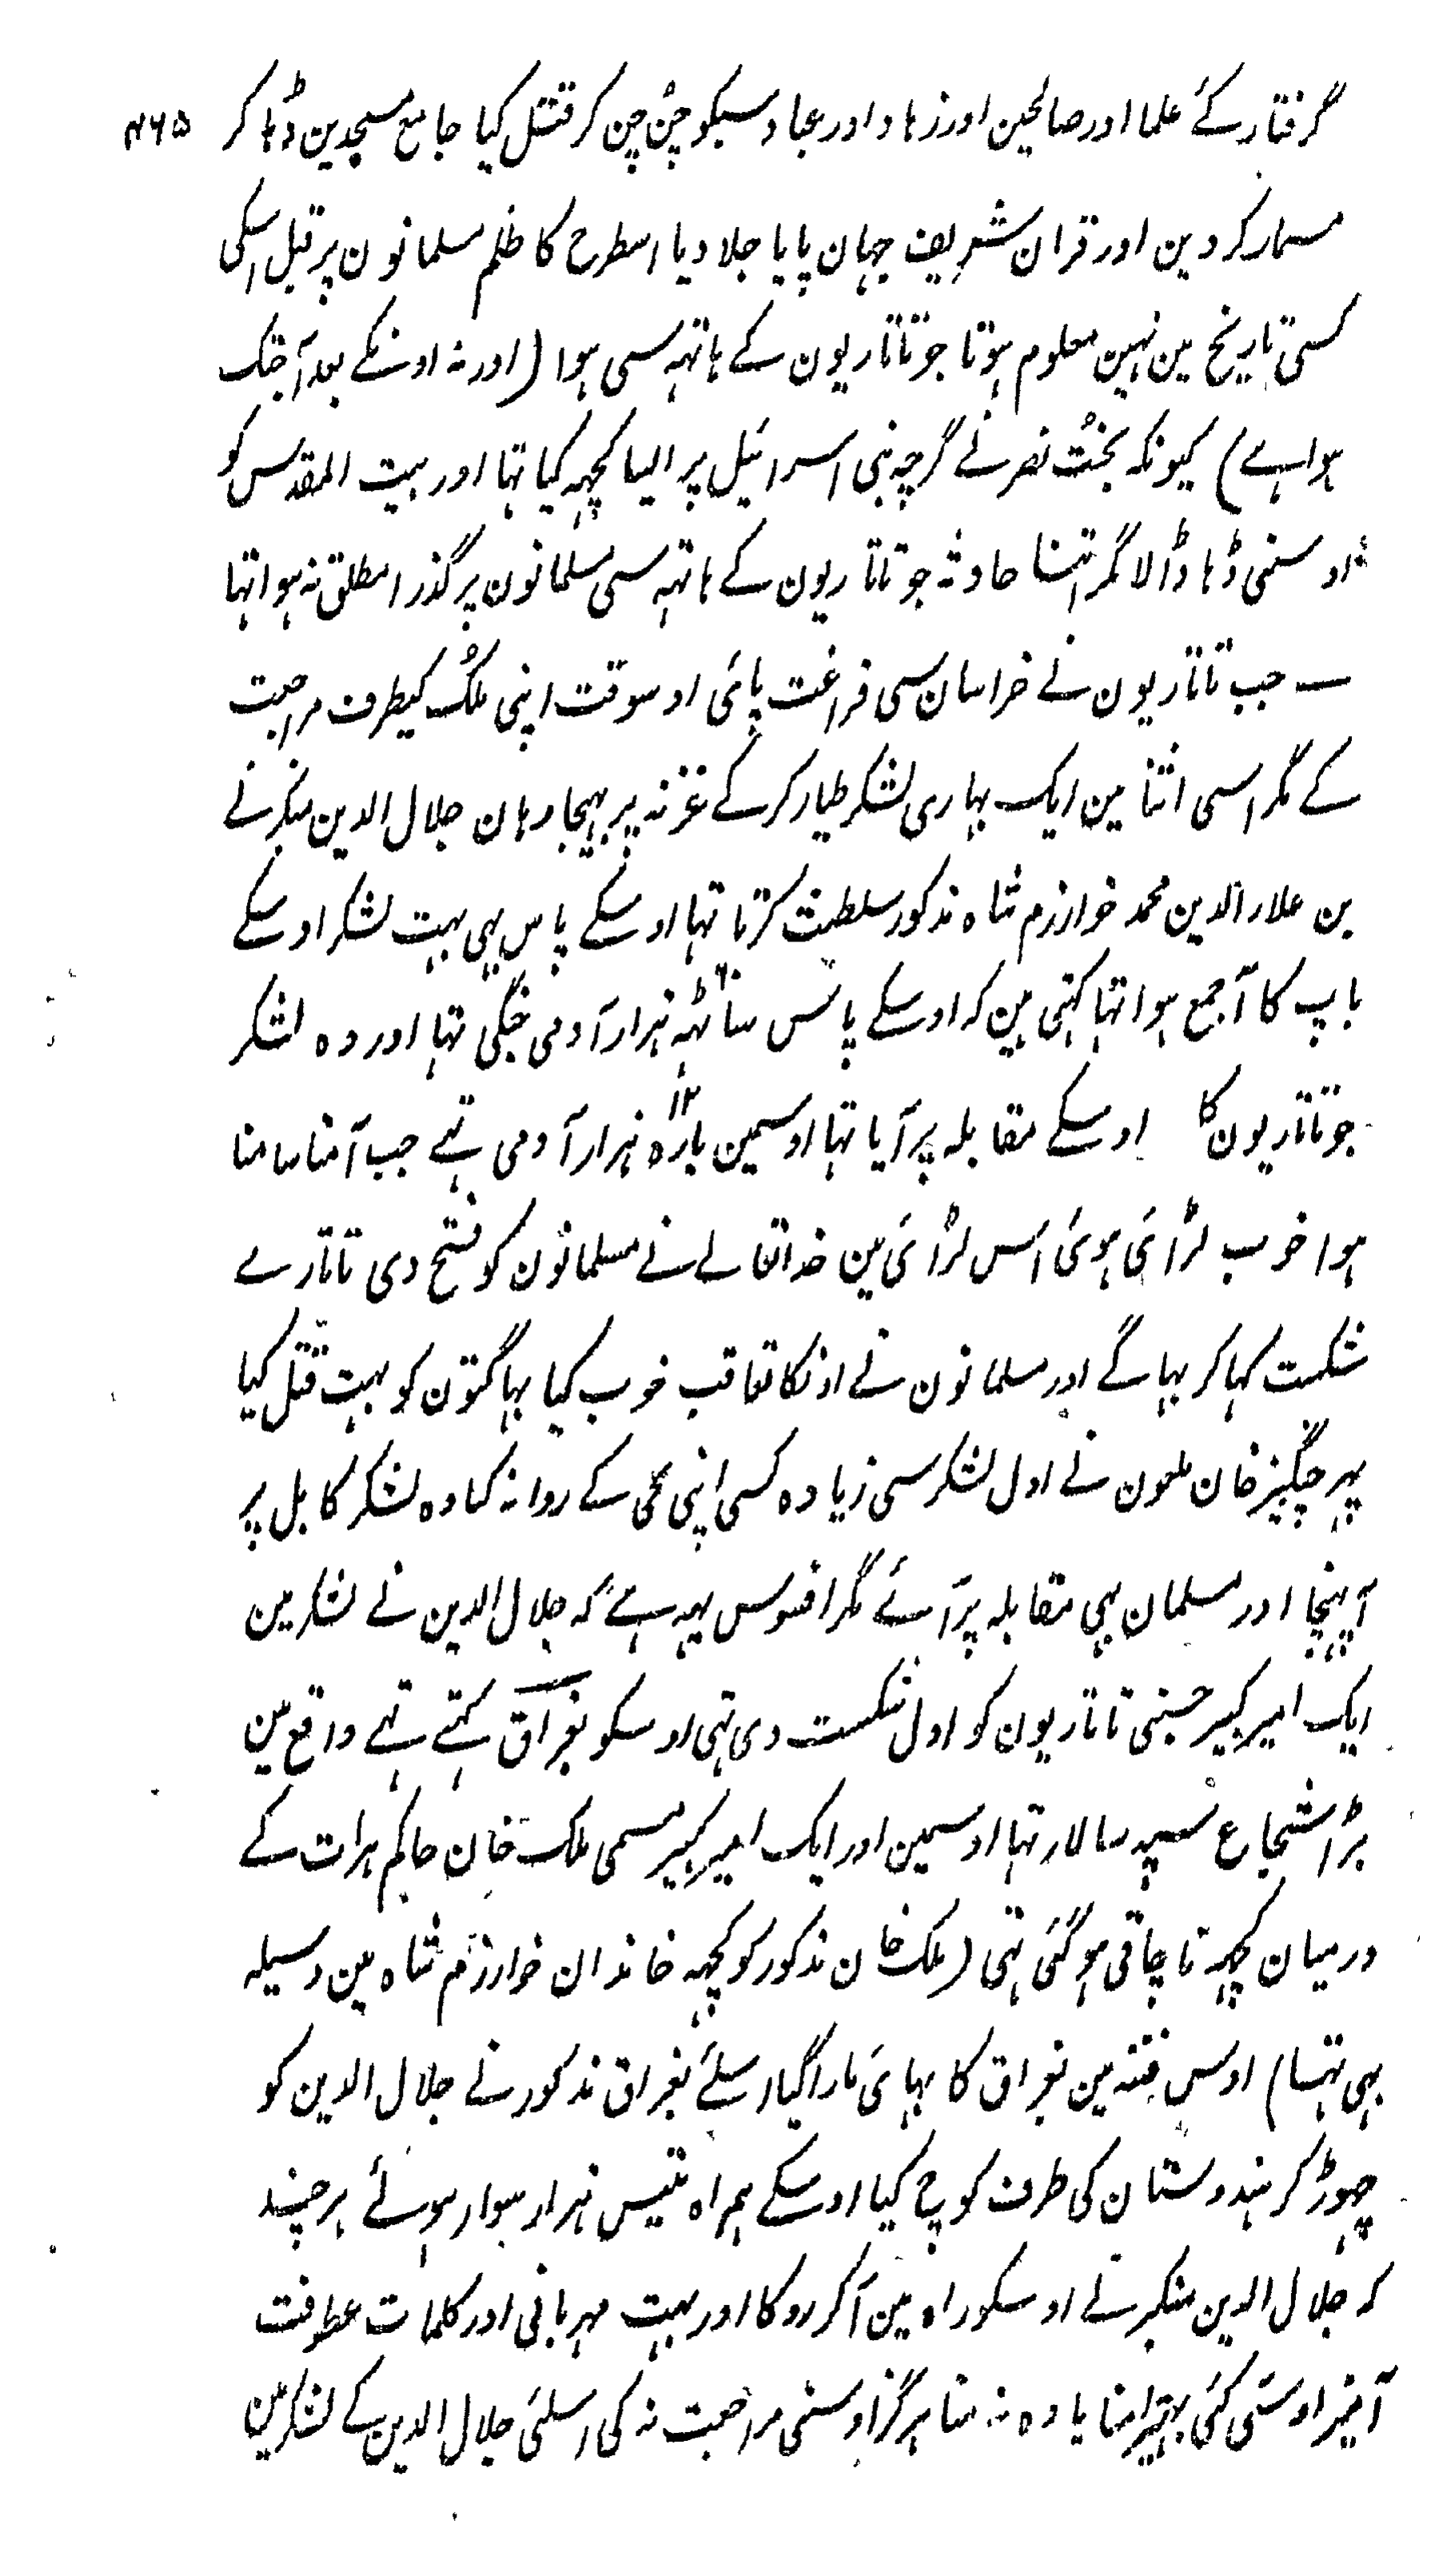 گرفتار کئے علما اور صالحین اور زہاد اور عباد سبکو چن چن کر قتل کیا جامع مسجدین ڈہا کر ۴۶۵
مسمار کر دین اور قران شریف جہان پایا جلا دیا اسطرح کا ظلم مسلمانون پر قبل اسکی
کسی تاریخ مین نہین معلوم ہوتا جو تاتاریون کے ہاتہہ سی ہوا (اور نہ اونکے بعد آجتک
ہوا ہے) کیونکہ بخت نصر نے گرچہ بنی اسرائیل پر ایسا کچہہ کیا تہا اور بیت المقدس کو
اوسنی ڈہا ڈالا مگر اتنا حادثہ جو تاتاریون کے ہاتہہ سی مسلمانون پر گذرا مطلق نہ ہوا تہا
ــ جب تاتاریون نے خراسان سی فراغت پائی اوسوقت اپنی ملک کیطرف مراجعت
کے مگر اسی اثنا مین ایک بہاری لشکر طیار کر کے غزنہ پر بہیجا وہان جلال الدین منکبرنے
بن علاء الدین محمد خوارزم شاہ مذکور سلطنت کرتا تہا اوسکے پاس بہی بہت لشکر اوسکے
باپ کا آ جمع ہوا تہا کہتی ہین کہ اوسکے پاس ساٹہہ ۶۰ ہزار آدمی جنگی تہا اور وہ لشکر
جو تاتاریون کا اوسکے مقابلہ پر آیا تہا اوسمین بارہ ۱۲ ہزار آدمی تہے جب آمنا سامنا
ہوا خوب لڑائی ہوئی اس لڑائی مین خداتعالے نے مسلمانون کو فتح دی تاتارے
شکست کہا کر بہاگے اور مسلمانون نے اونکا تعاقب خوب کیا بہاگتون کو بہت قتل کیا
پہر چنگیز خان ملعون نے اول لشکر سی زیادہ کسی اپنی کے روانہ کیا وہ لشکر کابل پر
آ پہنچا اور مسلمان بہی مقابلہ پر آئے مگر افسوس یہہ ہے کہ جلال الدین نے لشکر مین
ایک امیر کبیر جسنی تاتاریون کو اول شکست دی تہی اوسکو بغراق کہتے تہے واقع مین
بڑا شجاع سپہ سالار تہا اوسمین اور ایک امیر کبیر مسمی ملک خان حاکم ہرات کے
درمیان کچہہ ناچاقی ہو گئی تہی (ملک خان مذکور کو کچہہ خاندان خوارزم شاہ مین وسیلہ
بہی تہا) اوس فتنہ مین بغراق کا بہائی مارا گیا اسلئے بغراق مذکور نے جلال الدین کو
چہوڑ کر ہندوستان کی طرف کوچ کیا اوسکے ہمراہ تیس ہزار سوار ہوئے ہر چند
کہ جلال الدین منکبرنے اوسکو راہ مین آ کر روکا اور بہت مہربانی اور کلمات عطوفت
آمیز اوسی کئی بہتیرا منایا وہ نہ منا ہرگز اوسنی مراجعت نہ کی اسلئی جلال الدین کے لشکر مین